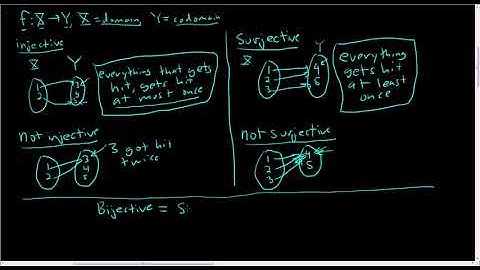 f: X → Y X = domain Y = codomain
injective
X Y
1 2
3 4 5
everything that gets
hit, gets hit
at most once
Not injective
1 2
3 4 5
3 got hit
twice
Surjective
X Y
1 2 3
4 5
everything
gets hit
at least
once
Not surjective
1 2 3
4 5
Bijective = S